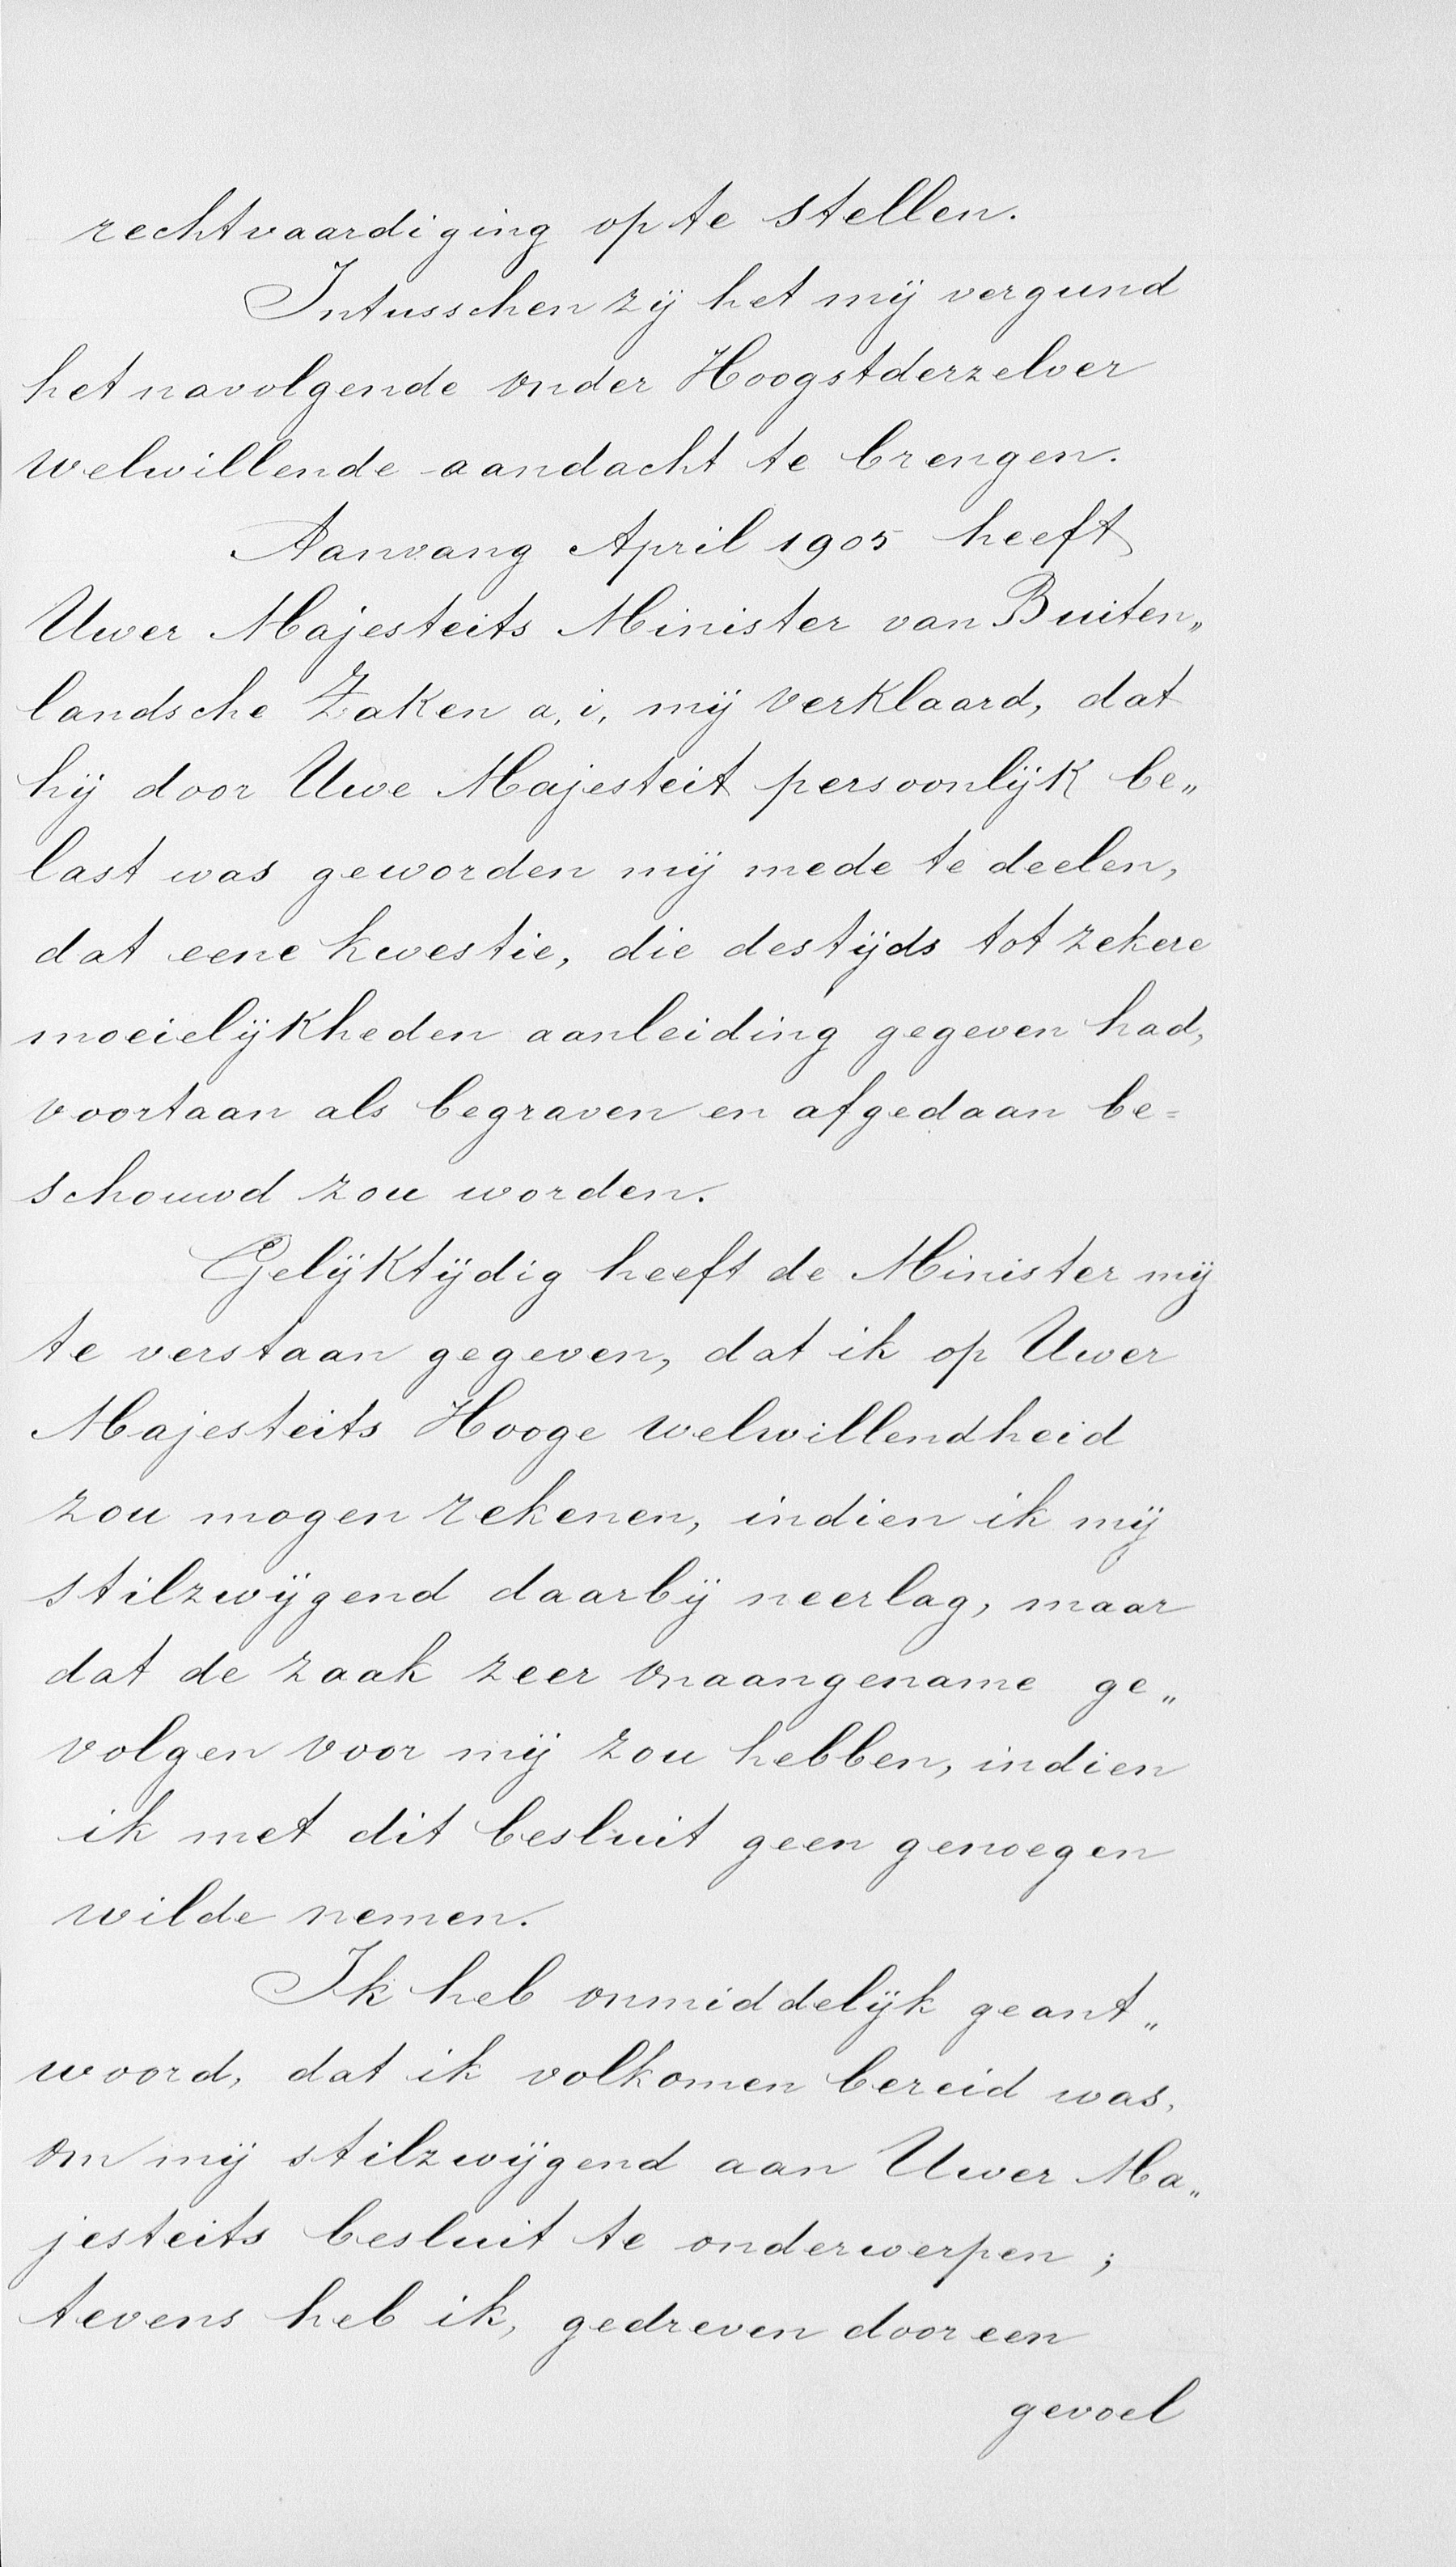 rechtvaardiging op te stellen.
Intusschen zij het mij vergund
het navolgende onder Hoogstderzelver
welwillende aandacht te brengen.
Aanvang April 1905 heeft
Uwer Majesteits Minister van Buiten„
landsche Zaken a, i, mij verklaard, dat
hij door Uwe Majesteit persoonlijk be„
last was geworden mij mede te deelen,
dat eene kwestie, die destijds tot zekere
moeielijkheden aanleiding gegeven had,
voortaan als begraven en afgedaan be=
schouwd zou worden.
Gelijktijdig heeft de Minister mij
te verstaan gegeven, dat ik op Uwer
Majesteits Hooge welwillendheid
zou mogen rekenen, indien ik mij
stilzwijgend daarbij neerlag, maar
dat de zaak zeer onaangename ge„
volgen voor mij zou hebben, indien
ik met dit besluit geen genoegen
wilde nemen.
Ik heb onmiddelijk geant„
woord, dat ik volkomen bereid was,
om mij stilzwijgend aan Uwer Ma„
jesteits besluit te onderwerpen;
tevens heb ik, gedreven door een
gevoel